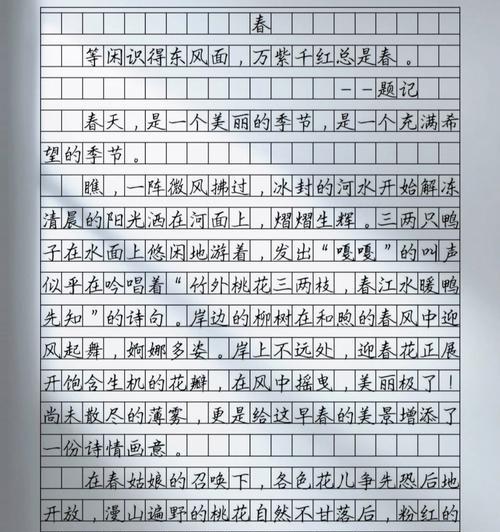 春
等闲识得东风面，万紫千红总是春。
——题记
春天，是一个美丽的季节，是一个充满希
望的季节。
瞧，一阵微风拂过，冰封的河水开始解冻
清晨的阳光洒在河面上，熠熠生辉。三两只鸭
子在水面上悠闲地游着，发出“嘎嘎”的叫声
似乎在吟唱着“竹外桃花三两枝，春江水暖鸭
先知”的诗句。岸边的柳树在和煦的春风中迎
风起舞，婀娜多姿。岸上不远处，迎春花正展
开饱含生机的花瓣，在风中摇曳，美丽极了！
尚未散尽的薄雾，更是给这早春的美景增添了
一份诗情画意。
在春姑娘的召唤下，各色花儿争先恐后地
开放，漫山遍野的桃花自然不甘落后，粉红的